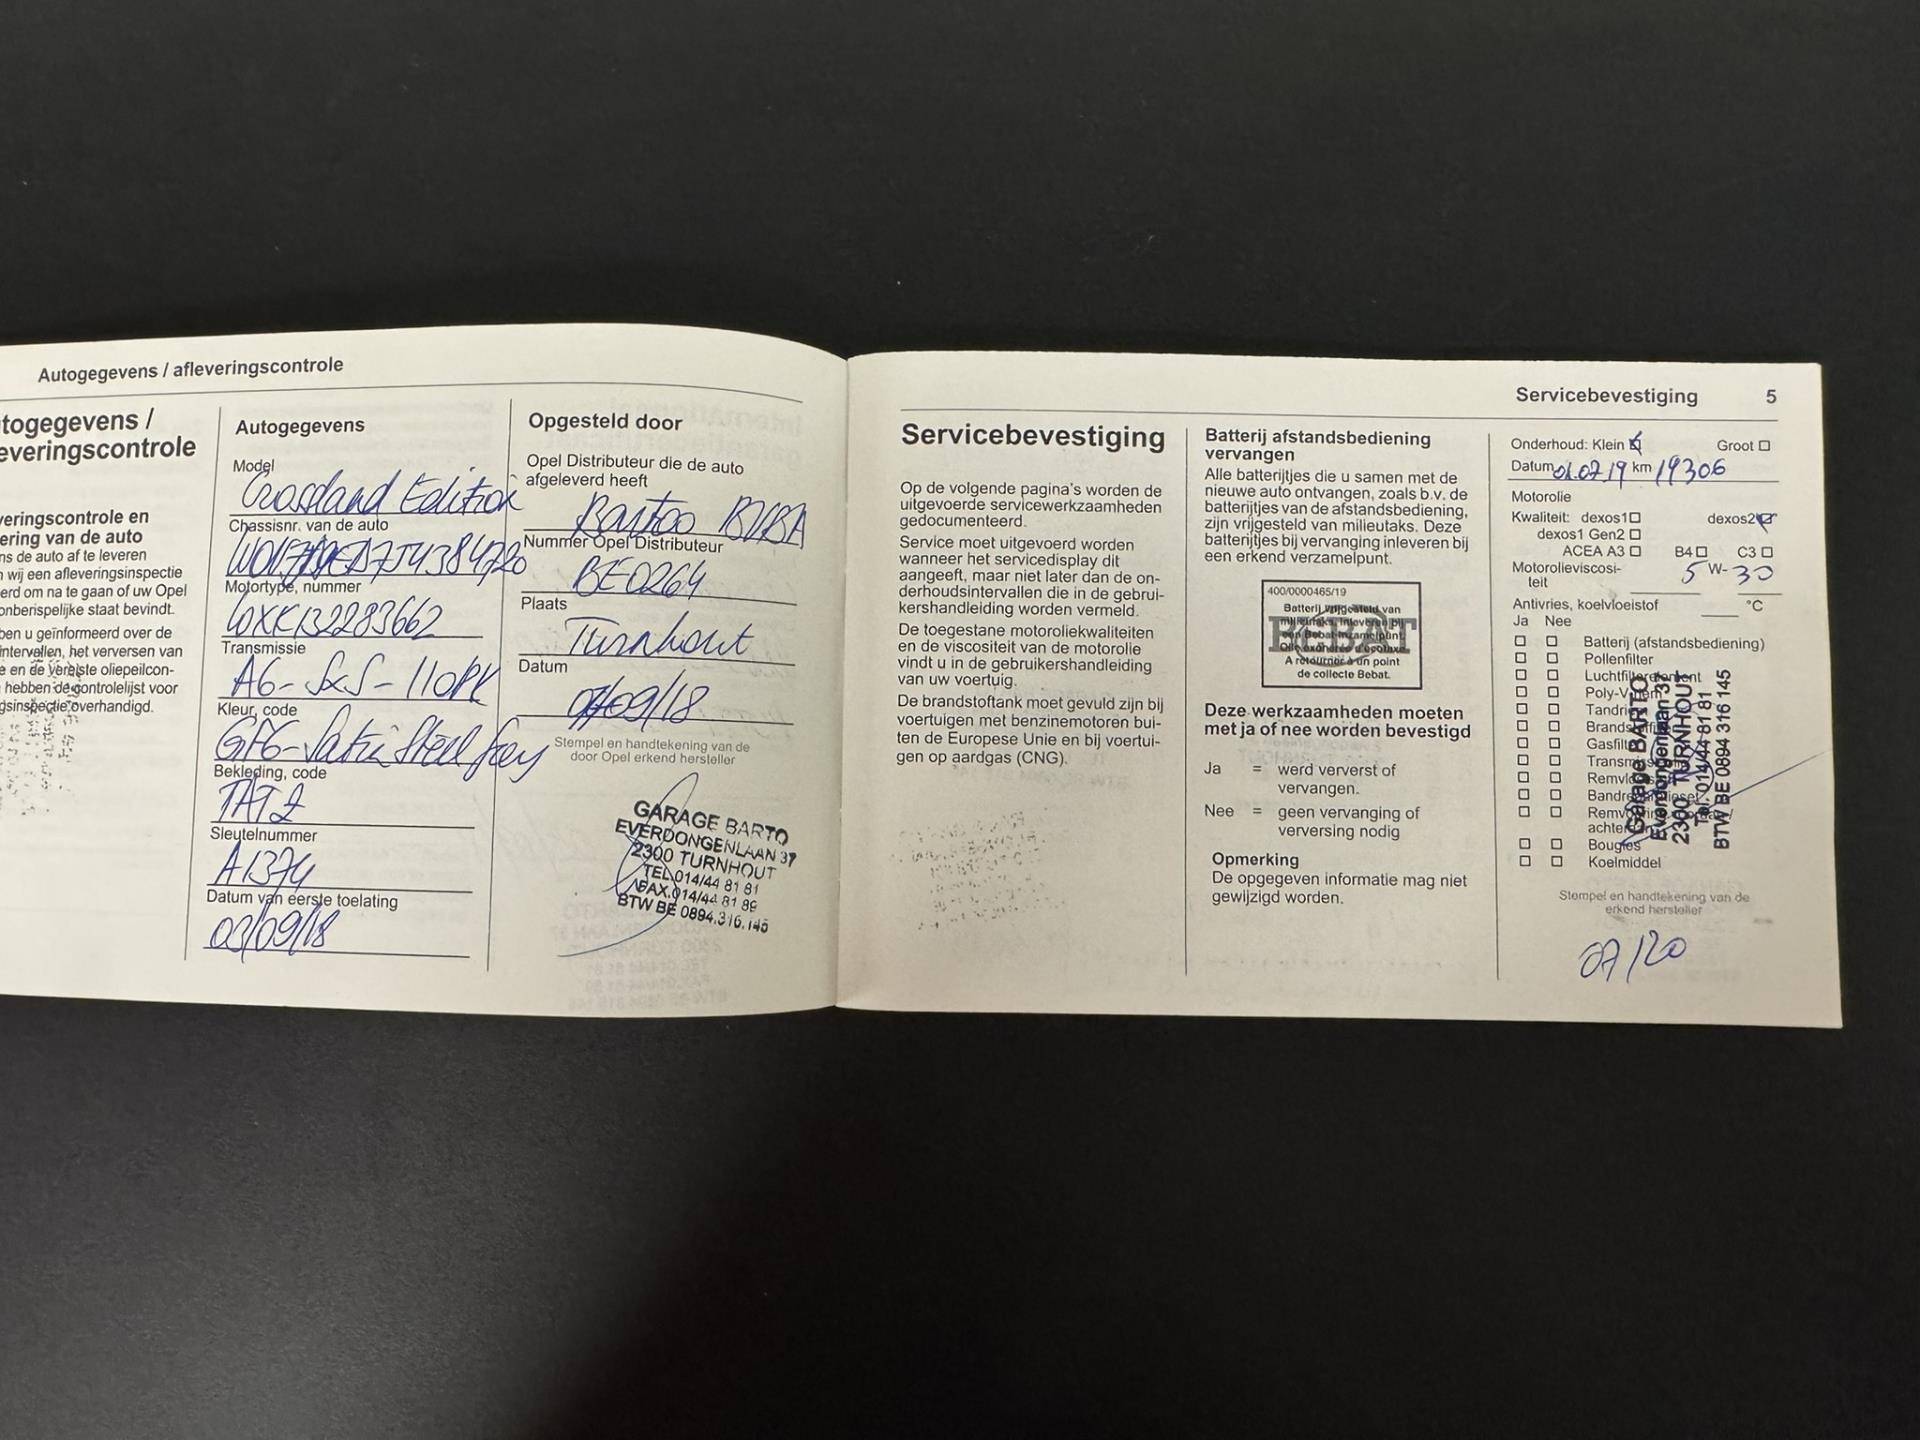 Autogegevens / afleveringscontrole
togegevens /
everingscontrole
veringscontrole en
ering van de auto
ns de auto af te leveren
n wij een afleveringsinspectie
erd om na te gaan of uw Opel
onberispelijke staat bevindt.
ben u geïnformeerd over de
intervellen, het verversen van
e en de vereiste oliepeilcon-
hebben de controlelijst voor
gsinspectie overhandigd.
Autogegevens
Model
Crossland Edition
Chassisnr. van de auto
Motortype, nummer
Transmissie
A6-SxS-110PK
Kleur, code
Bekleding, code
TAT2
Sleutelnummer
A1374
Datum van eerste toelating
03/09/18
Opgesteld door
Opel Distributeur die de auto
afgeleverd heeft
Bartoo BVBA
Nummer Opel Distributeur
BE0264
Plaats
Turnhout
Datum
07/09/18
Stempel en handtekening van de
door Opel erkend hersteller
GARAGE BARTO
EVERDONGENLAAN 37
2300 TURNHOUT
TEL.014/44 81 81
FAX.014/44 81 89
BTW BE 0894.316.145
Servicebevestiging 5
Servicebevestiging
Op de volgende pagina's worden de
uitgevoerde servicewerkzaamheden
gedocumenteerd.
Service moet uitgevoerd worden
wanneer het servicedisplay dit
aangeeft, maar niet later dan de on-
derhoudsintervallen die in de gebrui-
kershandleiding worden vermeld.
De toegestane motoroliekwaliteiten
en de viscositeit van de motorolie
vindt u in de gebruikershandleiding
van uw voertuig.
De brandstoftank moet gevuld zijn bij
voertuigen met benzinemotoren bui-
ten de Europese Unie en bij voertui-
gen op aardgas (CNG).
Batterij afstandsbediening
vervangen
Alle batterijtjes die u samen met de
nieuwe auto ontvangen, zoals b.v. de
batterijtjes van de afstandsbediening,
zijn vrijgesteld van milieutaks. Deze
batterijtjes bij vervanging inleveren bij
een erkend verzamelpunt.
400/0000465/19
BEBAT
Batterij vrijgesteld van
milieutaks. Inleveren bij
een Bebat-inzamelpunt.
Pile exonérée d'écotaxe.
A retourner à un point
de collecte Bebat.
Deze werkzaamheden moeten
met ja of nee worden bevestigd
Ja = werd ververst of
vervangen.
Nee = geen vervanging of
verversing nodig
Opmerking
De opgegeven informatie mag niet
gewijzigd worden.
Onderhoud: Klein Groot
Datum 01.07.19 km 19306
Motorolie
Kwaliteit: dexos1 dexos2
dexos1 Gen2
ACEA A3 B4 C3
Motorolieviscosi-
teit 5 W- 30
Antivries, koelvloeistof °C
Ja Nee
Batterij (afstandsbediening)
Pollenfilter
Luchtfilterelement
Bougies
Koelmiddel
Garage BARTO
Everdongenlaan 37
2300 TURNHOUT
Tel. 014/44 81 81
BTW BE 0894 316 145
Stempel en handtekening van de
erkend hersteller
07/20